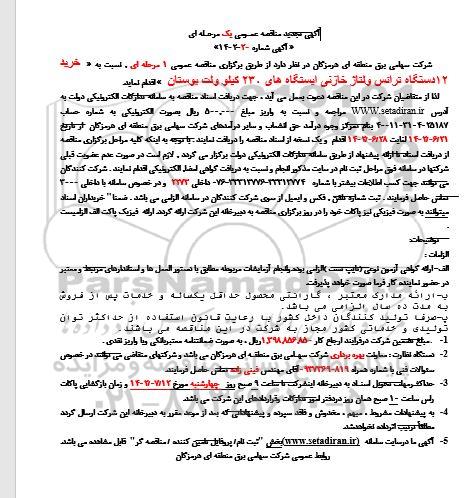 آگهی تجدید مناقصه عمومی یک مرحله ای
« آگهی شماره
شرکت سهامی برق منطقه ای هرمزگان در نظر دارد از طریق برگزاری مناقصه عمومی ۱ مرحله ای ، نسبت به « خرید
۱۲دستگاه ترانس ولتاژ خازنی ایستگاه های ۲۳۰ کیلو ولت بوستان » اقدام نماید.
لذا از متقاضیان شرکت در این مناقصه دعوت بعمل می آید ، جهت دریافت اسناد مناقصه به سامانه تدارکات الکترونیکی دولت به
آدرس WWW.setadiran.ir مراجعه و نسبت به واریز مبلغ ۵۰۰،۰۰۰ ریال بصورت الکترونیکی به شماره حساب
بنام تمرکز وجوه درآمد حق انشعاب و سایر درآمدهای شرکت سهامی برق منطقه ای هرمزگان از تاریخ
لغایت اقدام و یک نسخه از اسناد مناقصه را دریافت نمایند. با توجه به اینکه کلیه مراحل برگزاری مناقصه
از دریافت اسناد تا ارائه پیشنهاد از طریق سامانه تدارکات الکترونیکی دولت برگزار می گردد ، لازم است در صورت عدم عضویت قبلی
شرکتها در سامانه فوق مراحل ثبت نام در سایت مذکور انجام و نسبت به دریافت گواهی امضا الکترونیکی اقدام نمایند . شرکت کنندگان
می توانند جهت کسب اطلاعات بیشتر با شماره داخلی و در خصوص سامانه با داخلی ۳۰۰۰
تماس حاصل فرمایند . ثبت شماره تلفن ، فکس و ایمیل از سوی شرکت کنندگان در سامانه الزامی می باشد . ضمنا" خریداران اسناد
میتوانند به صورت فیزیکی نیز پاکات خود را در روز برگزاری مناقصه به دبیرخانه این شرکت ارائه گردد. ارائه فیزیک پاکت الف الزامیست
.
توضیحات:
الزامات :
الف-ارائه گواهی آزمون نوعی (تایپ تست)الزامی بوده وانجام آزمایشات مربوطه مطابق با دستور العمل ها و استانداردهای مرتبط و معتبر
در حضور نماینده کار فرما صورت خواهد پذیرفت.
ب-ارائه مدارک معتبر ، گارانتی محصول حداقل یکساله و خدمات پس از فروش
به مدت ده سال الزامی می باشد.
پ-صرفا تولید کنندگان داخل کشور با رعایت قانون استفاده از حداکثر توان
تولیدی و خدماتی کشور مجاز به شرکت در این مناقصه می باشند.
1- مبلغ تضمین شرکت درفرایند ارجاع کار ریال ، به صورت ضمانتنامه معتبربانکی ویا واریز نقدی .
2- دستگاه نظارت : معاونت بهره برداری شرکت سهامی برق منطقه ای هرمزگان می باشد و شرکتهای متقاضی می توانند در خصوص
سئوالات فنی با شماره همراه آقای مهندس تماس حاصل فرمایند.
3- حداکثر مهلت تحویل اسناد به دبیرخانه اینشرکت تا ساعت ۹ صبح روز چهارشنبه مورخ و زمان بازگشایی پاکات
راس ساعت ۱۰ صبح همان روز دردفتر امور تدارکات و قراردادهای این شرکت می باشد.
4- به پیشنهادات مشروط ، مبهم ، مخدوش و فاقد سپرده و پیشنهاداتی که بعد از موعد مقرر به دبیرخانه این شرکت ارسال گردد
مطلقاً ترتیب اثر داده نخواهد شد.
5- آگهی ما در سایت سامانه (www.setadiran.ir)بخش "ثبت نام / پروفایل تامین کننده / مناقصه گر" قابل مشاهده می باشد.
روابط عمومی شرکت سهامی برق منطقه ای هرمزگان